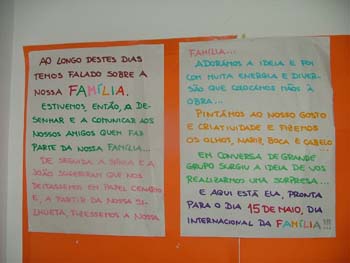 AO LONGO DESTES DIAS
TEMOS FALADO SOBRE A
NOSSA FAMÍLIA.
ESTIVEMOS, ENTÃO, A DE-
SENHAR E A COMUNICAR AOS
NOSSOS AMIGOS QUEM FAZ
PARTE DA NOSSA FAMÍLIA...
DE SEGUIDA A SÓNIA E A
JOÃO SUGERIRAM QUE NOS
DEITASSEMOS EM PAPEL CENÁRIO
E, A PARTIR DA NOSSA SI-
LHUETA, FIZESSEMOS A NOSSA
FAMÍLIA...
ADORÁMOS A IDEIA E FOI
COM MUITA ENERGIA E DIVER-
SÃO QUE COLOCÁMOS MÃOS À
OBRA...
PINTÁMOS AO NOSSO GOSTO
E CRIATIVIDADE E FIZEMOS
OS OLHOS, NARIZ, BOCA E CABELO...
EM CONVERSA DE GRANDE
GRUPO SURGIU A IDEIA DE VOS
REALIZARMOS UMA SURPRESA...
E AQUI ESTÁ ELA, PRONTA
PARA O DIA 15 DE MAIO, DIA
INTERNACIONAL DA FAMÍLIA!!!